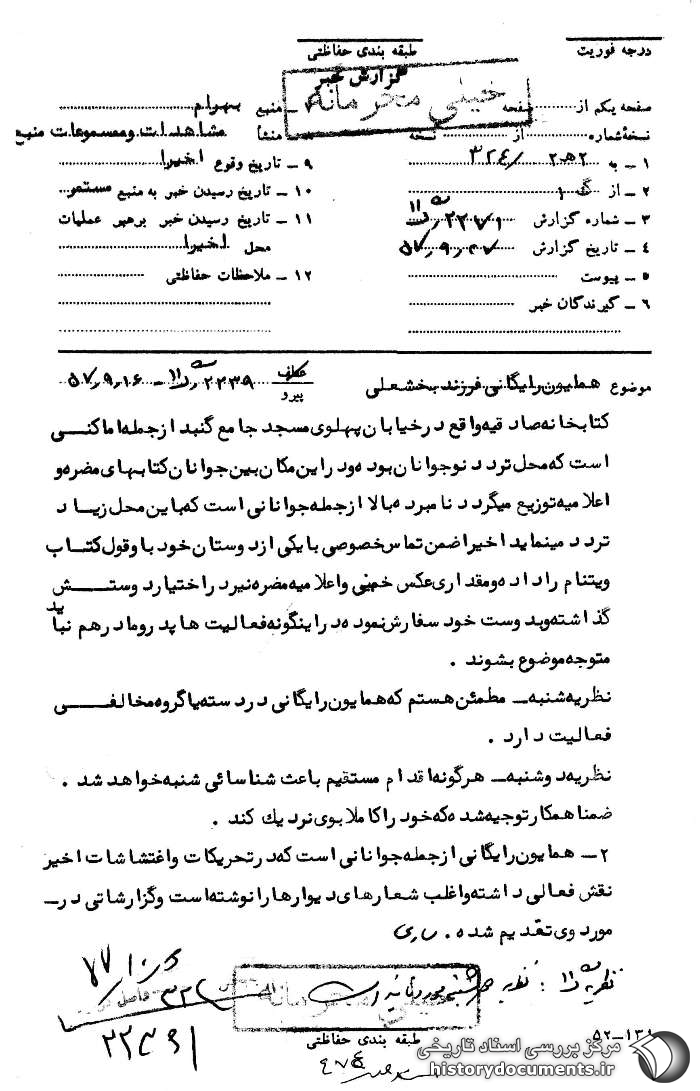 درجه فوریت
طبقه بندی حفاظتی
گزارش خبر
خیلی محرمانه
صفحه یکم از صفحه
نسخهٔ شماره از نسخه
۱ – به ۳۲۴/ ۲ه۲
۲ – از
۳ – شماره گزارش ۲۲۷۱/
۴ – تاریخ گزارش ۵۷٫۹٫۲۷
۵ – پیوست
۶ – گیرندگان خبر
منبع بهرام
منشأ مشاهدات ومسموعات منبع
۹ – تاریخ وقوع اخیرا
۱۰ – تاریخ رسیدن خبر به منبع مستمر
۱۱ – تاریخ رسیدن خبر برهبر عملیات
محل اخیرا
۱۲ – ملاحظات حفاظتی
موضوع همایون رایگانی فرزند بخشعلی عطف پیرو ۲۲۳۹/ – ۵۷٫۹٫۱۶
کتابخانه صادقیه واقع درخیابان پهلوی مسجد جامع گنبد ازجمله اماکنی
است که محل تردد نوجوانان بوده ودراین مکان بین جوانان کتابهای مضره و
اعلامیه توزیع میگردد نامبرده بالا ازجمله جوانانی است که باین محل زیاد
تردد مینماید اخیرا ضمن تماس خصوصی بایکی ازدوستان خود باوقول کتاب
ویتنام راداده ومقداری عکس خمینی واعلامیه مضره نیزدراختیار دوستش
گذاشته وبدوست خود سفارش نموده دراینگونه فعالیت ها پدرومادرهم نباید
متوجه موضوع بشوند .
نظریه شنبه – مطمئن هستم که همایون رایگانی دردسته یاگروه مخالفی
فعالیت دارد .
نظریه دوشنبه – هرگونه اقدام مستقیم باعث شناسائی شنبه خواهد شد .
ضمنا همکارتوجیه شده که خود راکاملا بوی نزدیك کند .
۲ – همایون رایگانی ازجمله جوانانی است که درتحریکات واغتشاشات اخیر
نقش فعالی داشته واغلب شعارهای دیوارها رانوشته است وگزارشاتی در–
مورد وی تقدیم شده . ساری
نظریه : نظریه
خیلی محرمانه
طبقه بندی حفاظتی
۵۲–۱۳۸
مرکز بررسی اسناد تاریخی
historydocuments.ir